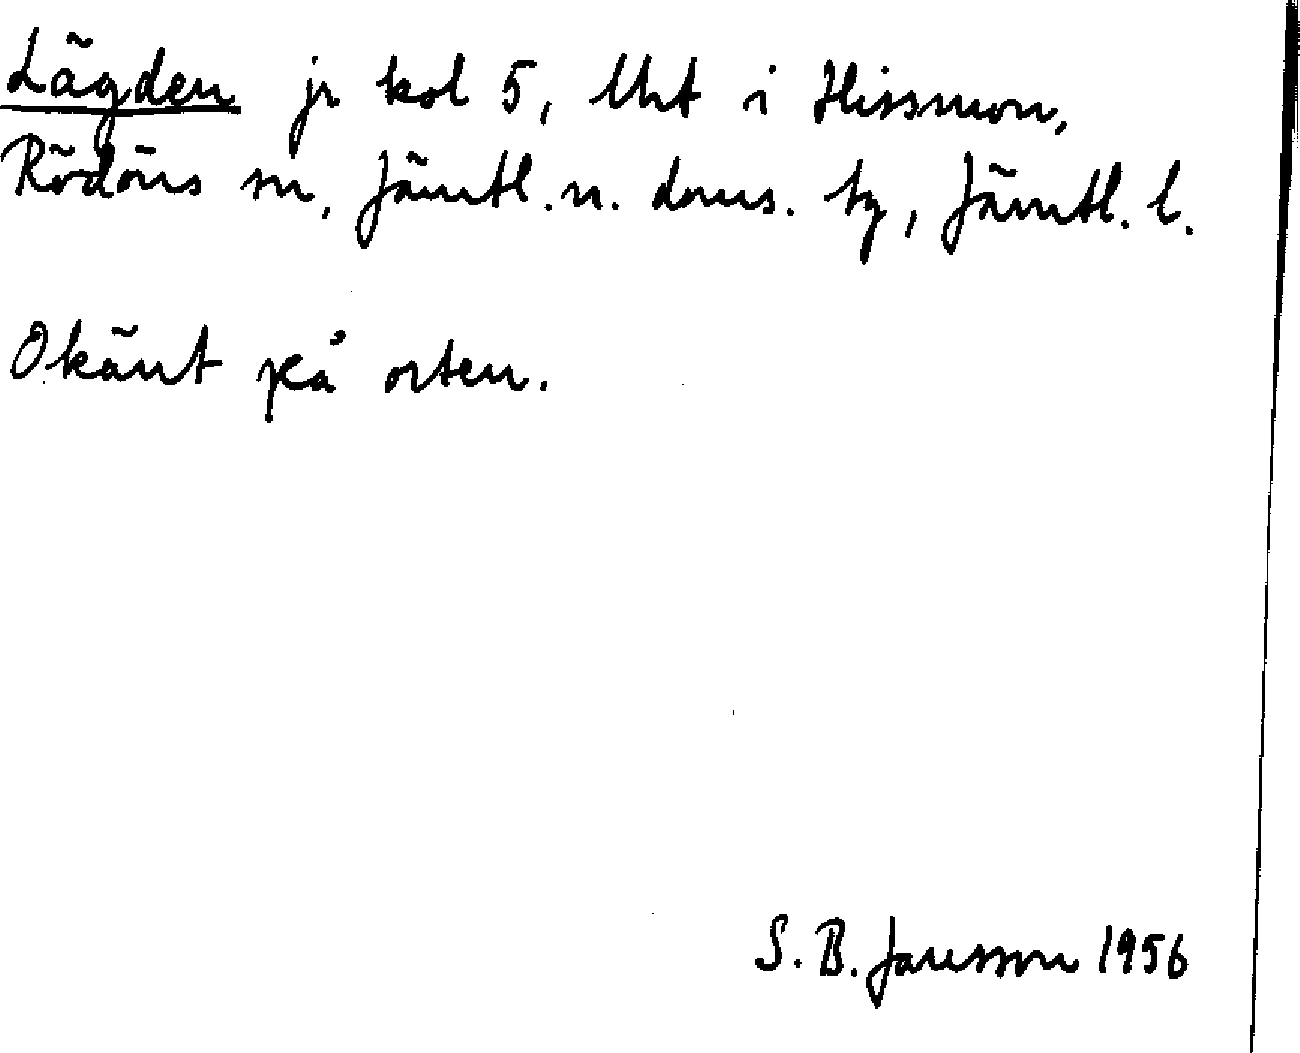 Lägden jr kol 5, Uht i Hissmon,
Rödöns sn, Jämtl. n. doms. tg, Jämtl. l.
Okänt på orten.
S. B. Jansson 1956